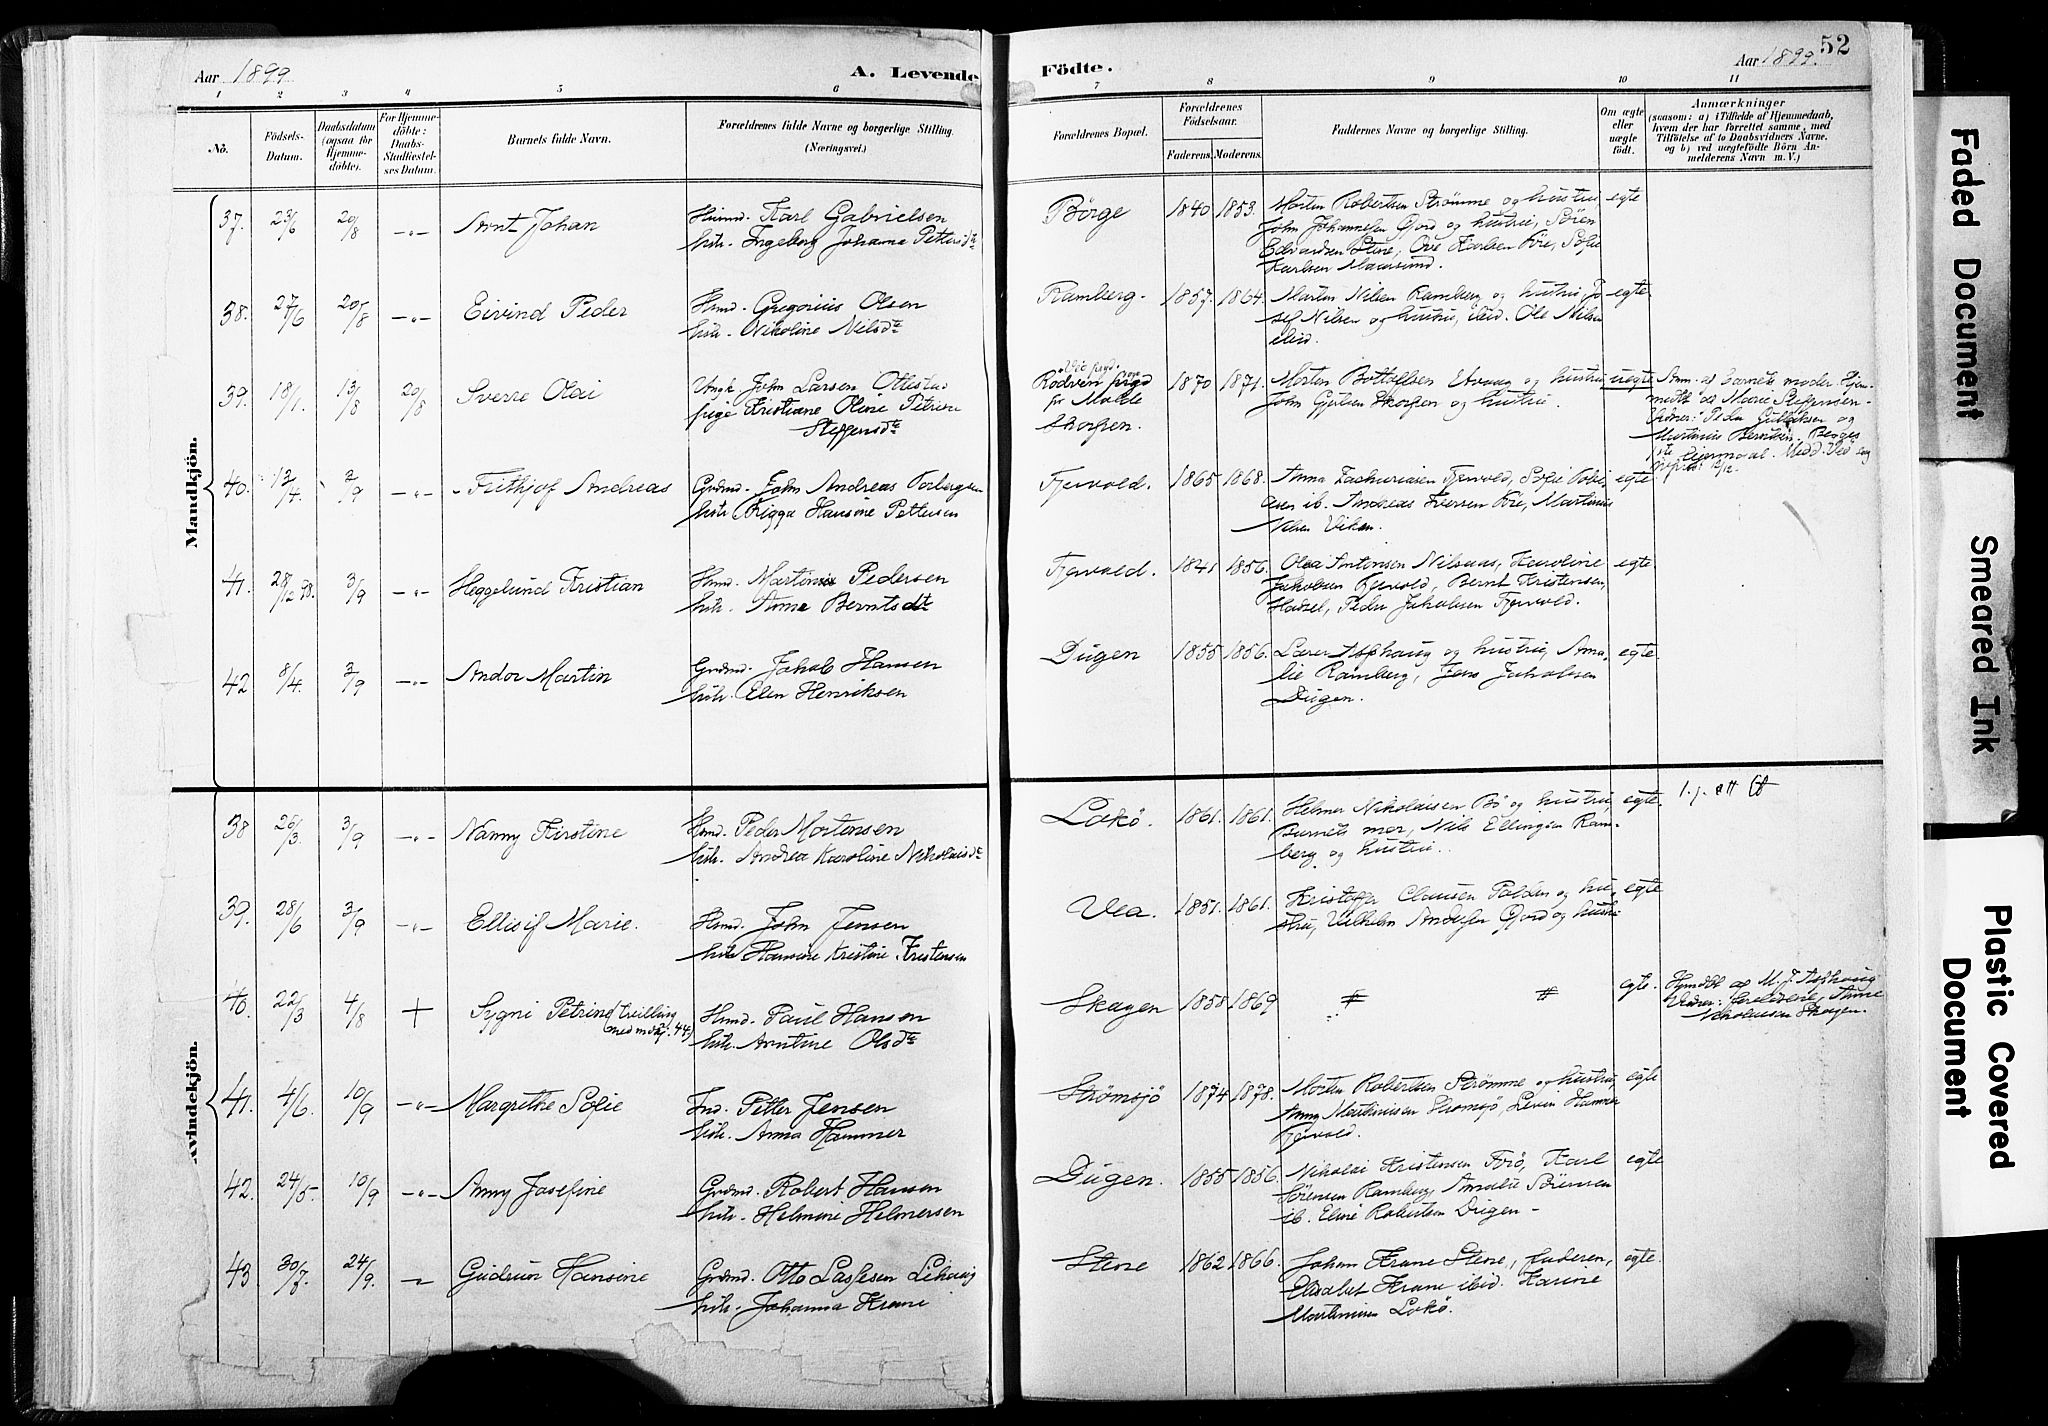 Aar 1899
A. Levende
Födte.
Aar 1899.
52
1 2 3 4 5 6 7 8 9 10 11
No.
Födsels-
Datum.
Daabsdatum
(ogsaa for
Hjemme-
döbte).
For Hjemme-
döbte:
Daabs-
Stadfæstel-
ses Datum.
Barnets fulde Navn.
Forældrenes fulde Navne og borgerlige Stilling.
(Næringsvei.)
Forældrenes Bopæl.
Forældrenes
Födselsaar.
Faderens. Moderens.
Faddernes Navne og borgerlige Stilling.
Om ægte
eller
uægte
födt.
Anmærkninger
(saasom: a) i Tilfælde af Hjemmedaab,
hvem der har forrettet samme, med
Tilföielse af to Daabsvidners Navne.
og b) ved uægtefödte Börn An-
melderens Navn m. V.)
Mandkjön.
37. 23/6 20/8 -"- Arnt Johan
Huusmd. Karl Gabrielsen
hstr. Ingeborg Johanna Pettersdtr
Börge 1840 1853.
Morten Robertsen Strömme og hustru
John Johannesen Gjord og hustru, Sören
Edvardsen Stene, Ove Karlsen Före, Sofie
Karlsen Maursund.
egte
38. 27/6 20/8 -"- Eivind Peder
Hmd. Gregorius Olsen
hstr. Nikoline Nilsdtr
Ramberg. 1857. 1864.
Martin Nilsen Ramberg og hustru, Jo
sef Nilsen og hustru, ibid. Ole Nilsen
ibid.
egte
39. 18/1. 13/8 20/8 Sverre Olai
Ungk. John Larsen
pige Kristiane Oline Petrine
Steffensdtr
Rödven
for Molde
Skorpen.
1870 1871.
Morten Bottolfsen og hustru
John Gjertsen Skorpen og hustru.
uegte
Anm. af barnets moder. Hjem-
medbt af Marie Steffensen.
Vidner: Peder Gulliksen og
Martinus Berntsen.
40. 12/4. 3/9 -"- Frithjof Andreas
Grdmd. John Andreas Torbergsen
hstr. Brigga Hansine Pettersen
Fjervold. 1865 1868.
Anna Zachariasen Fjervold, Sofie Tobi-
asen ib. Andreas Iversen Före, Martinus
Nilsen Vikan.
egte
41. 28/12 98. 3/9 -"- Heggelund Kristian
Hmd. Martinus Pedersen
hstr. Anna Berntsdtr
Fjervold. 1841 1856.
Olea Antonsen Nilsaas, Karoline
Jakobsen Fjervold, Bernt Kristensen,
Hadsel, Peder Jakobsen Fjervold.
egte.
42 8/4. 3/9 -"- Andor Martin
Grdmd. Jakob Hansen
hstr. Elen Henriksen
Dugen 1855 1856.
Lærer Asphaug og hustru, Ama-
lie Ramberg, Jens Jakobsen
Dugen.
egte.
Kvindekjön.
38 26/3. 3/9 -"- Nanny Kirstine
Hmd. Peder Mortensen
hstr. Andrea Karoline Nikolaisdtr
Lakö. 1861. 1861.
Helmer Nikolaisen Bö og hustru,
Barnets mor, Nils Ellingsen Ram-
berg og hustru.
egte.
39. 28/6 3/9 -"- Ellisif Marie.
Hmd. John Jensen
hstr Hansine Kristine Kristensen
Vea. 1851. 1861.
Kristoffer Clausen Palden og hu-
stru, Vilhelm Andersen Gjord og hustru
egte
40. 22/3 4/8 + Sygni Petrine (tvilling
med mskj. 44)
Hmd. Paul Hansen
hstr. Arntine Olsdtr
Skagen 1858 1869
# #
egte.
Hjmdbt af M. J. Asphaug
Vidner: forældrene, Anne
Nikolaisen Skagen.
41. 4/6. 10/9 -"- Margrethe Sofie
Ind. Petter Jensen
hstr. Anna Hammer
Strömsjö 1874 1878.
Morten Robertsen Strömme og hustru,
Anna Martinusen Strömsjö, Levin Hammer
Fjervold.
egte
42. 24/5. 10/9 -"- Anny Josefine
Grdmd. Robert Hansen
hstr. Helmine Helmersen
Dugen. 1855 1856.
Nikolai Kristensen Forö, Karl
Sörensen Ramberg, Amalie Sörensen
ib. Eline Robertsen Dugen-
egte
43 30/7. 24/9. -"- Gudrun Hansine
Grdmd. Otto Lassesen Lihaug
hstr. Johanna Krane
Stene 1862 1866.
Johan Krane Stene, faderen,
Elisabet Krane ibid. Karine
Martinusen Lakö.
egte.
Faded Document
Smeared Ink
Plastic Covered
Document